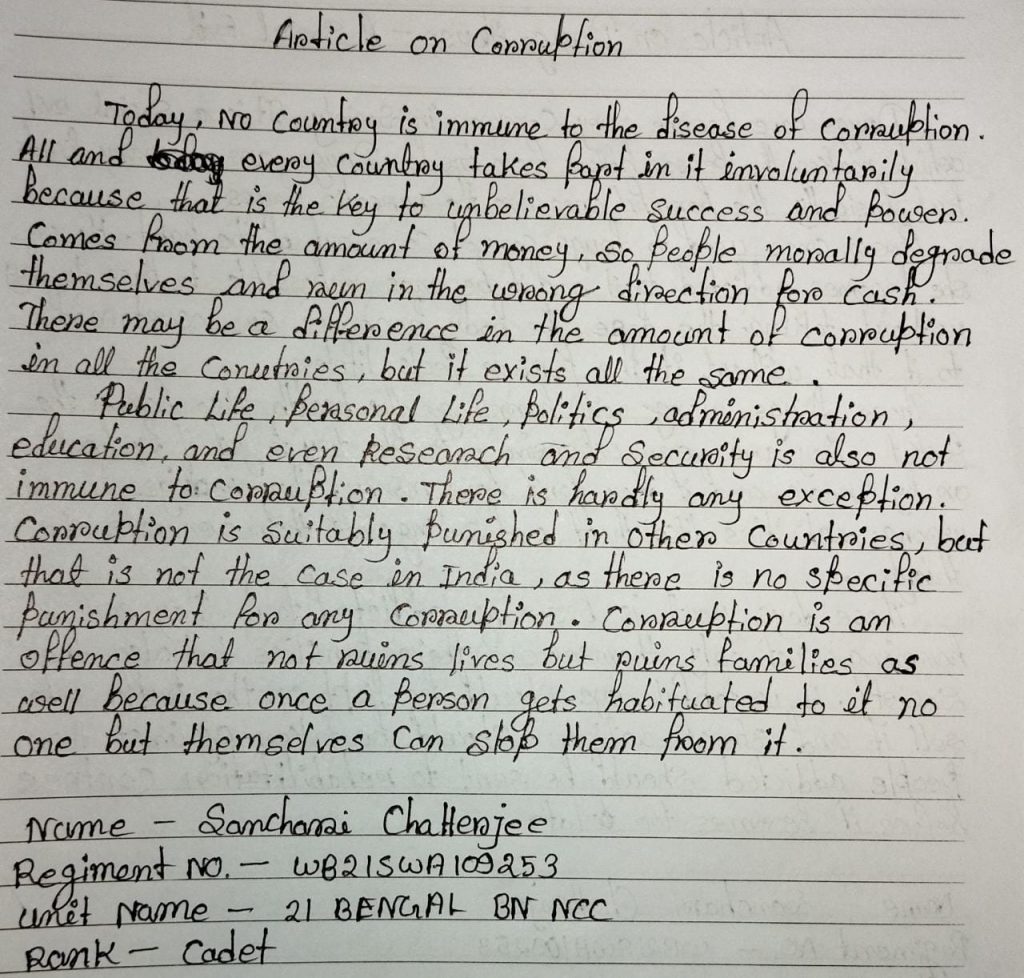 Article on Corruption
Today, No Country is immune to the disease of Corruption.
All and every Country takes part in it involuntarily
because that is the key to unbelievable success and Power.
Comes from the amount of money, so people morally degrade
themselves and run in the wrong direction for cash.
There may be a difference in the amount of corruption
in all the Countries, but it exists all the same.
Public Life, Personal Life, politics, administration,
education, and even Research and Security is also not
immune to Corruption. There is hardly any exception.
Corruption is Suitably punished in other Countries, but
that is not the Case in India, as there is no specific
punishment for any Corruption. Corruption is an
offence that not ruins lives but ruins families as
well because once a person gets habituated to it no
one but themselves Can stop them from it.
Name - Sancharai Chatterjee
Regiment No. - WB21SWA109253
Unit Name - 21 BENGAL BN NCC
Rank - Cadet